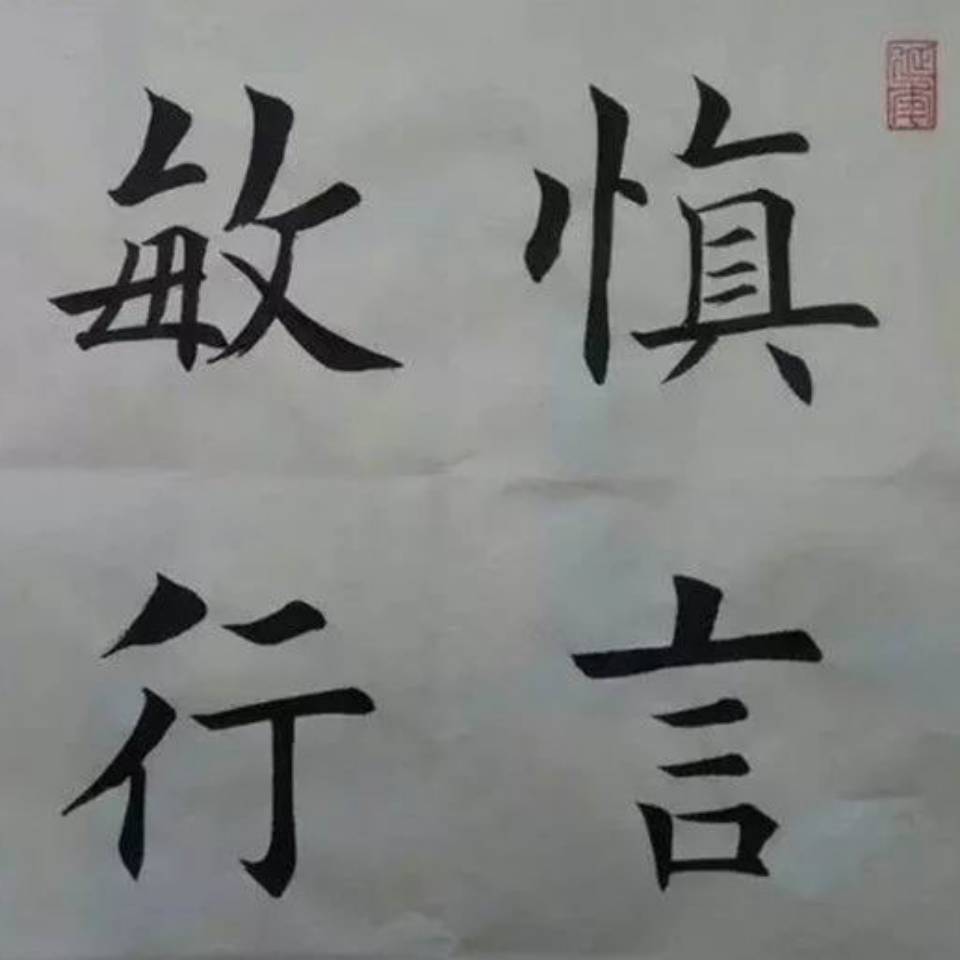 慎言
敏行